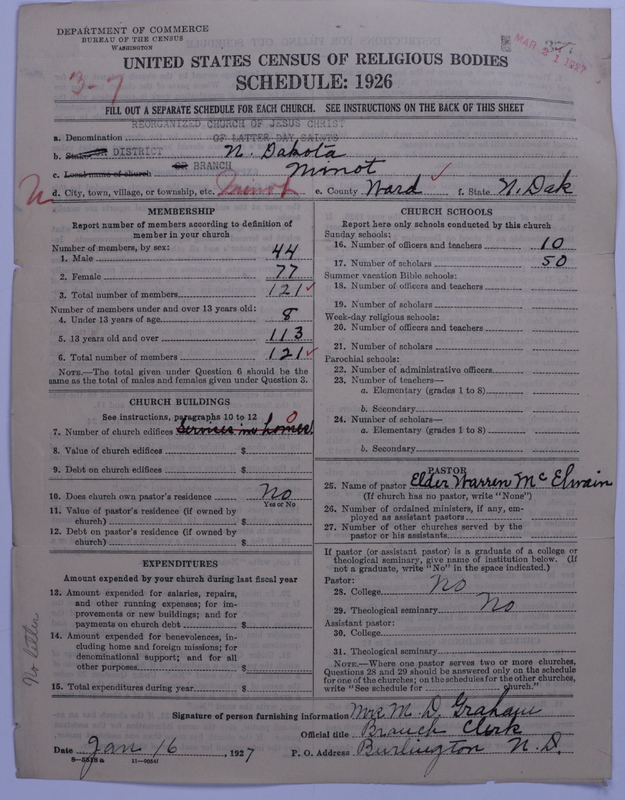 DEPARTMENT OF COMMERCE
BUREAU OF THE CENSUS
WASHINGTON
MAR 21 1927
UNITED STATES CENSUS OF RELIGIOUS BODIES
SCHEDULE: 1926
3-7
FILL OUT A SEPARATE SCHEDULE FOR EACH CHURCH. SEE INSTRUCTIONS ON THE BACK OF THIS SHEET
REORGANIZED CHURCH OF JESUS CHRIST
a. Denomination OF LATTER DAY SAINTS
b. DISTRICT N. Dakota
c. Local name of church OR BRANCH Minot
d. City, town, village, or township, etc. Minot e. County Ward f. State N. Dak
MEMBERSHIP
Report number of members according to definition of
member in your church
Number of members, by sex:
1. Male 44
2. Female 77
3. Total number of members 121
Number of members under and over 13 years old:
4. Under 13 years of age 8
5. 13 years old and over 113
6. Total number of members 121
NOTE.—The total given under Question 6 should be
same as the total of males and females given under Question 3.
CHURCH BUILDINGS
See instructions, paragraphs 10 to 12
7. Number of church edifices Services in homes 0
8. Value of church edifices $
9. Debt on church edifices $
10. Does church own pastor's residence No
Yes or No
11. Value of pastor's residence (if owned by
church) $
12. Debt on pastor's residence (if owned by
church) $
EXPENDITURES
Amount expended by your church during last fiscal year
13. Amount expended for salaries, repairs,
and other running expenses; for im-
provements or new buildings; and for
payments on church debt $
14. Amount expended for benevolences, in-
cluding home and foreign missions; for
denominational support; and for all
other purposes $
15. Total expenditures during year $
No letter
CHURCH SCHOOLS
Report here only schools conducted by this church
Sunday schools:
16. Number of officers and teachers 10
17. Number of scholars 50
Summer vacation Bible schools:
18. Number of officers and teachers
19. Number of scholars
Week-day religious schools:
20. Number of officers and teachers
21. Number of scholars
Parochial schools:
22. Number of administrative officers
23. Number of teachers—
a. Elementary (grades 1 to 8)
b. Secondary
24. Number of scholars—
a. Elementary (grades 1 to 8)
b. Secondary
PASTOR
25. Name of pastor Elder Warren McElwain
(If church has no pastor, write "None")
26. Number of ordained ministers, if any, em-
ployed as assistant pastors
27. Number of other churches served by the
pastor or his assistants
If pastor (or assistant pastor) is a graduate of a college or
theological seminary, give name of institution below. (If
not a graduate, write "No" in the space indicated.)
Pastor:
28. College No
29. Theological seminary No
Assistant pastor:
30. College
31. Theological seminary
NOTE.—Where one pastor serves two or more churches,
Questions 28 and 29 should be answered only on the schedule
for one of the churches; on the schedules for the other churches,
write "See schedule for church."
Signature of person furnishing information Mrs. M. D. Graham
Official title Branch Clerk
Date Jan 16, 1927 P. O. Address Burlington N. D.
8-5518a 11-9034f